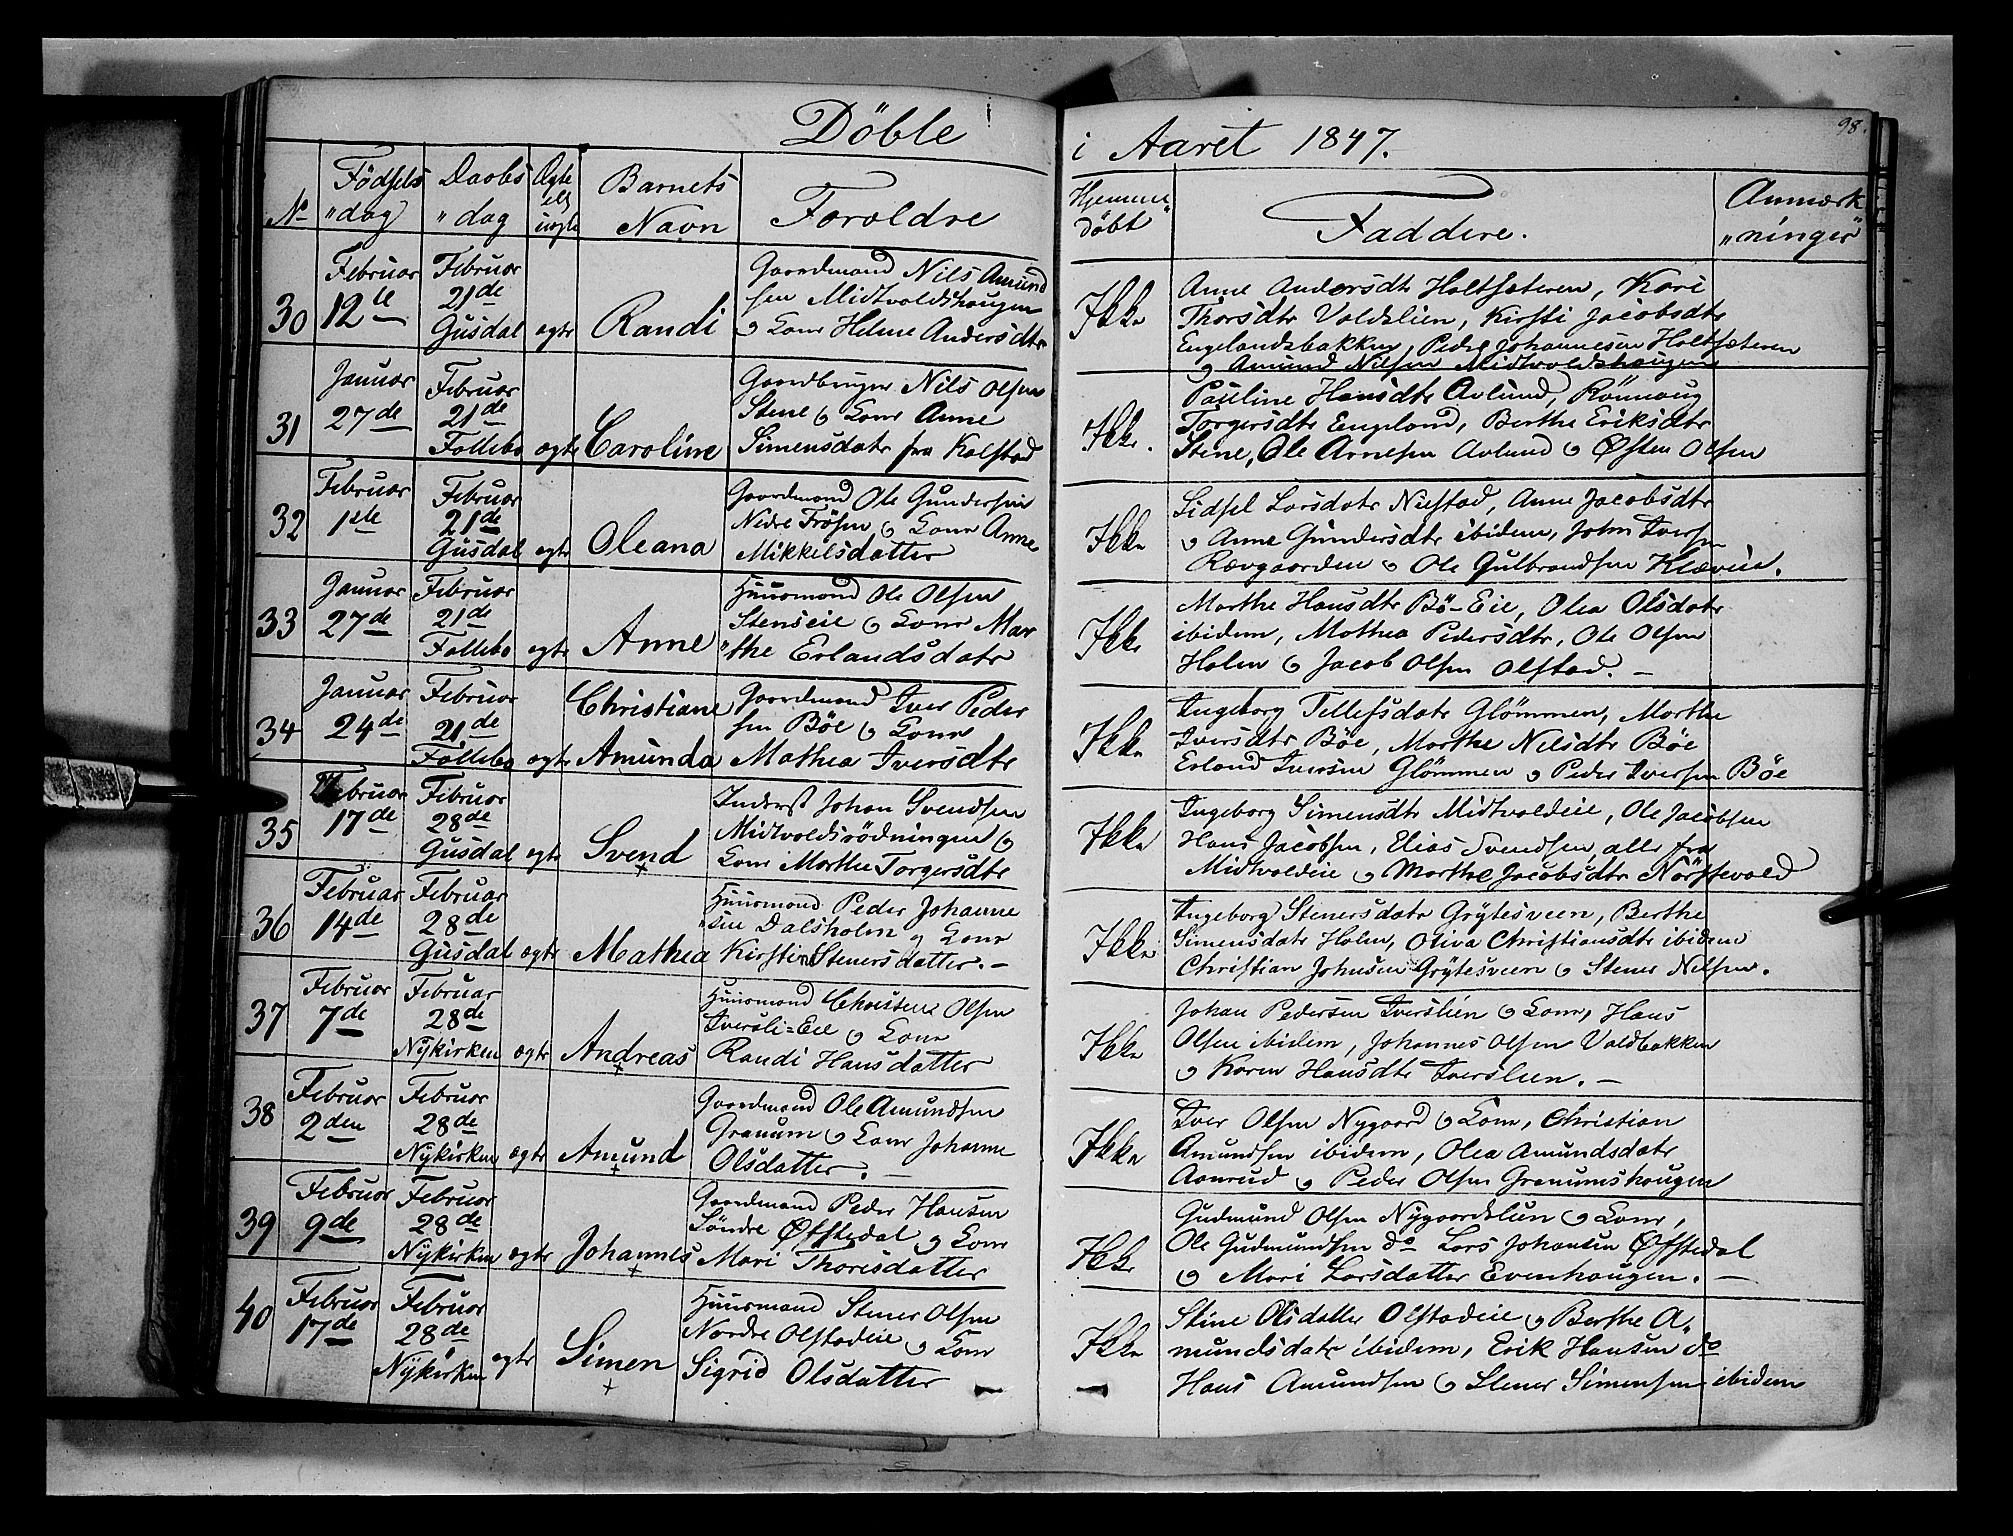 Döbte
i Aaret 1847.
98.
No
Födsels
"dag
Daabs
"dag
Ægte
ell
uægte
Barnets
Navn
Foræ​ldre
Hjemme"
döbt
Faddere.
Anmærk
"ninger
30
Februar
12te
Februar
21de
Gusdal
ægte
Randi
Gaardmand Nils Amund
sen Midtvoldshaugen
og Kone Helene Andersdtr
Ikke
Anne Andersdtr Holtsæteren, Kari
Thorsdtr Voldslien, Kirsti Jacobsdtr
Engelandsbakken, Peder Johannesen Holtsæteren
og Amund Nilsen Midtvoldshaugen
31
Januar
27de
Februar
21de
Follebo
ægte
Caroline
Gaardbruger Nils Olsen
Stene og Kone Anne
Simensdatr fra Kalstad
Ikke.
Pauline Hansdtr Avlund, Rönnaug
Torgersdtr Engeland, Berthe Eriksdtr
Stene, Ole Arnesen Avlund og Østen Olsen
32
Februar
1ste
Februar
21de
Gusdal
ægte
Oleana
Gaardmand Ole Gundersen
Nedre Frösen og Kone Anne
Mikkelsdatter
Ikke
Sidsel Larsdatr Nustad, Anne Jacobsdtr
og Anne Gundersdtr ibidem, John Iversen
Rævgaarden og Ole Gulbrandsen Klæveie.
33
Januar
27de
Februar
21de
Follebo
ægte
Anne
Huusmand Ole Olsen
Stenseie og Kone Mar
"the Erlandsdatr
Ikke
Marthe Hansdtr Bö-Eie, Olea Olsdatr
ibidem, Mathea Pedersdtr, Ole Olsen
Holen og Jacob Olsen Olstad. -
34
Januar
24de
Februar
21de
Follebo
ægte
Christiane
Amunda
Gaardmand Iver Peder
sen Böe og Kone
Mathea Iversdtr
Ikke
Ingeborg Tellefsdatr Glömmen, Marthe
Iversdtr Böe, Marthe Nilsdtr Böe
Erland Iversen Glömmen og Peder Iversen Böe
35
Februar
17de
Februar
28de
Gusdal
ægte
Svend
Inderst Johan Svendsen
Midtvoldsrödningen og
Kone Marthe Torgersdtr
Ikke
Ingeborg Simensdtr Midtvoldeie, Ole Jacobsen
Hans Jacobsen, Elias Svendsen, alle fra
Midtvoldeie og Marthe Jacobsdtr Nörstevold
36
Februar
14de
Februar
28de
Gusdal
ægte
Mathea
Huusmand Peder Johanne
"sen Dalsholm og Kone
Kirstine Stenersdatter. -
Ikke
Ingeborg Stenersdatr Grytesveen, Berthe
Simensdatr Holen, Oliva Christiansdtr ibidem
Christian Johnsen Grytesveen og Stener Nilsen.
37
Februar
7de
Februar
28de
Nykirken
ægte
Andreas
Huusmand Christen Olsen
Iversli=Eie og Kone
Randi Hansdatter
Ikke
Johan Pedersen Iverslien og Kone, Hans
Olsen ibidem, Johannes Olsen Voldbakken
og Karen Hansdtr Iverslien. -
38
Februar
2den
Februar
28de
Nykirken
ægte
Amund
Gaardmand Ole Amundsen
Granum og Kone Johanne
Olsdatter. -
Ikke
Iver Olsen Nygaard og Kone, Christian
Amundsen ibidem, Olea Amundsdatr
Aanrud og Peder Olsen Granumshaugen
39
Februar
9de
Februar
28de
Nykirken
ægte
Johannes
Gaardmand Peder Hansen
Söndre Øfstedal og Kone
Mari Thorisdatter
Ikke
Gudmund Olsen Nygaardslien og Kone,
Ole Gudmundsen do Lars Johansen Øfstedal
og Mari Larsdatter Evenhaugen. -
40
Februar
17de
Februar
28de
Nykirken
ægte
Simen
Huusmand Stener Olsen
Nordre Olstadeie og Kone
Sigrid Olsdatter
Ikke
Stine Olsdatter Olstadeie og Berthe A.
mundsdatr ibidem, Erik Hansen do
Hans Amundsen og Stener Simensen ibidem